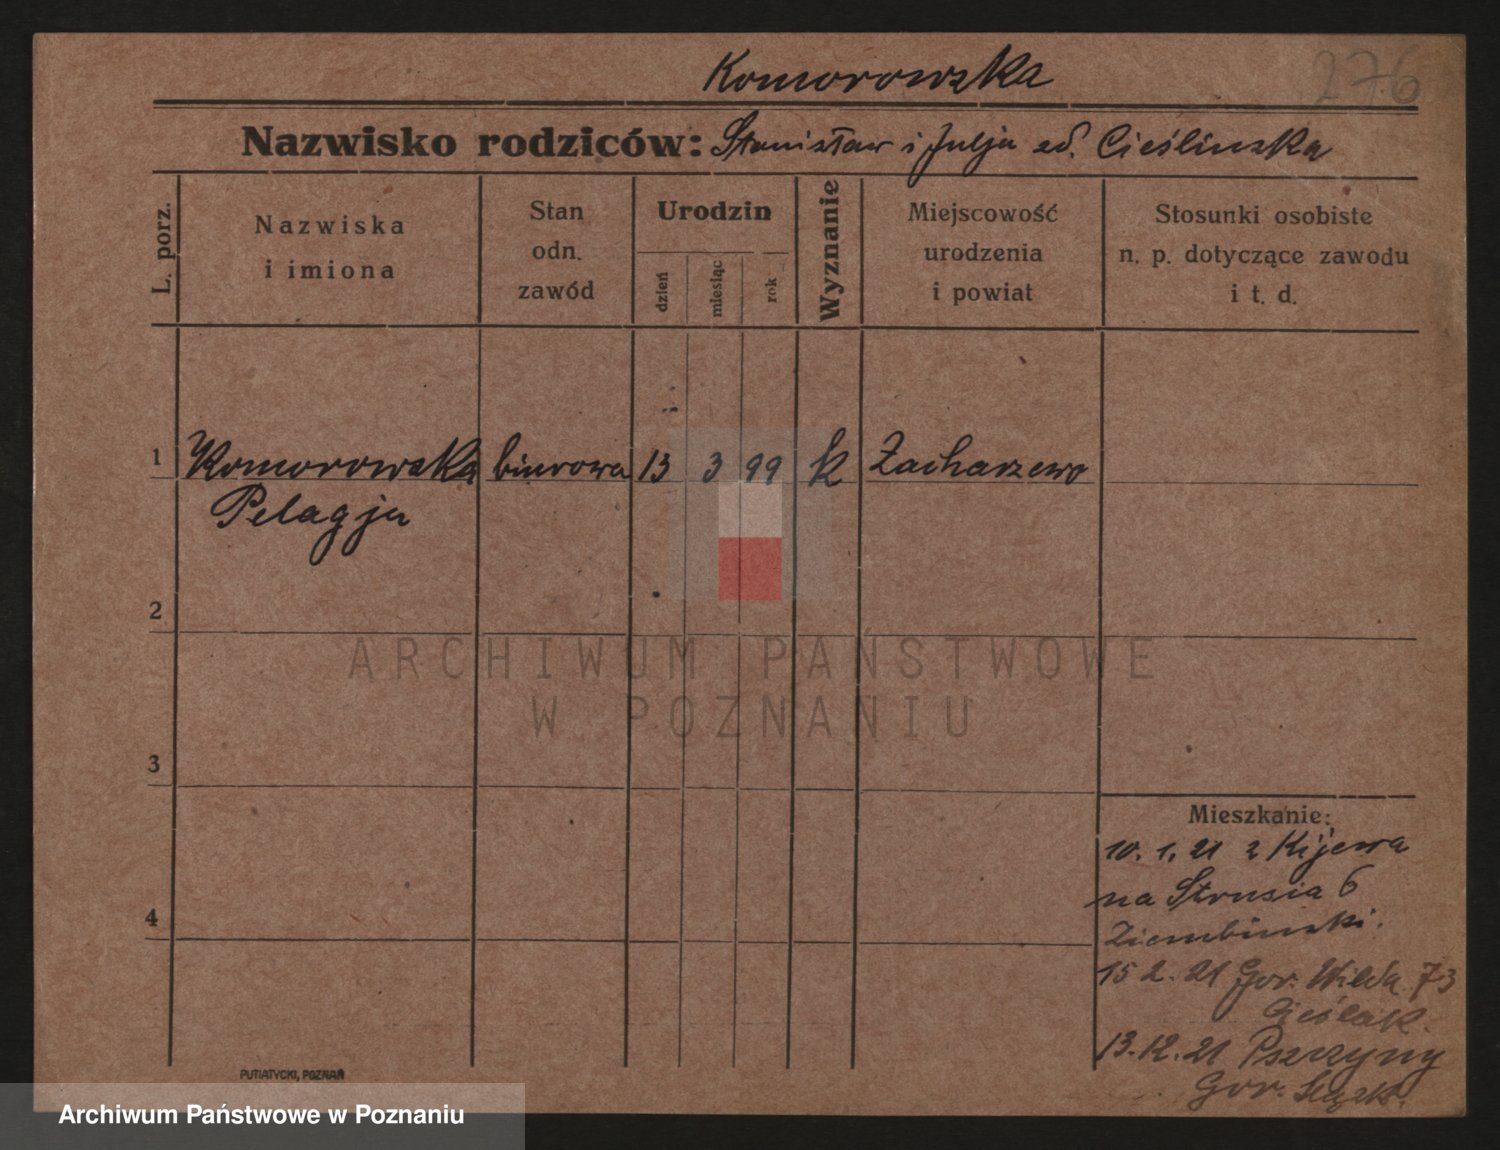 276
Komorowska
Nazwisko rodziców: Stanisław i Julja zd. Cieślinska
L. porz.
Nazwiska
i imiona
Stan
odn.
zawód
Urodzin
dzień
miesiąc
rok
Wyznanie
Miejscowość
urodzenia
i powiat
Stosunki osobiste
n. p. dotyczące zawodu
i t. d.
1 Komorowska biurowa 13 3 99 k Zacharzewo
Pelagja
2
3
4
Mieszkanie:
10. 1. 21 z Kijewa
na Strusia 6
Ziembinski.
15 2. 21 Gór. Wilda 73
Cieślak.
13.12.21 Pszczyny
Gór. Śląsk.
PUTIATYCKI, POZNAŃ
ARCHIWUM PAŃSTWOWE
W POZNANIU
Archiwum Państwowe w Poznaniu